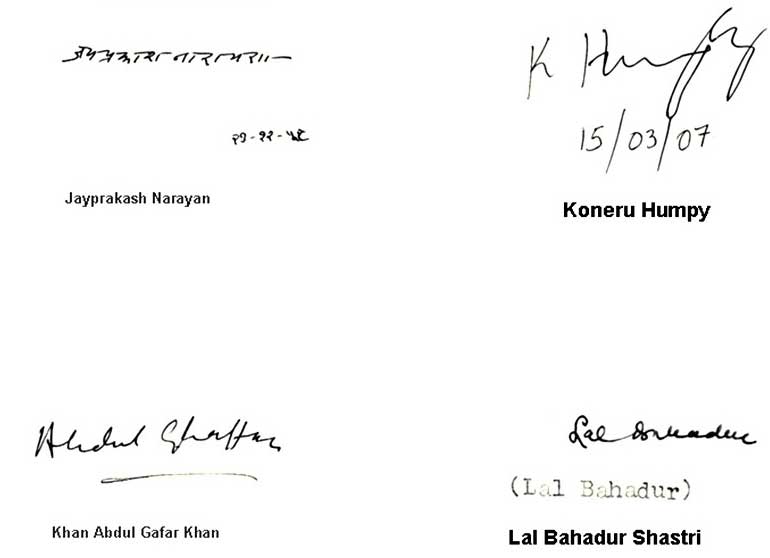 जयप्रकाश नारायण
K Humpy
15/03/07
Jayprakash Narayan
Koneru Humpy
Abdul Ghaffar
Lal Bahadur
(Lal Bahadur)
Khan Abdul Gafar Khan
Lal Bahadur Shastri